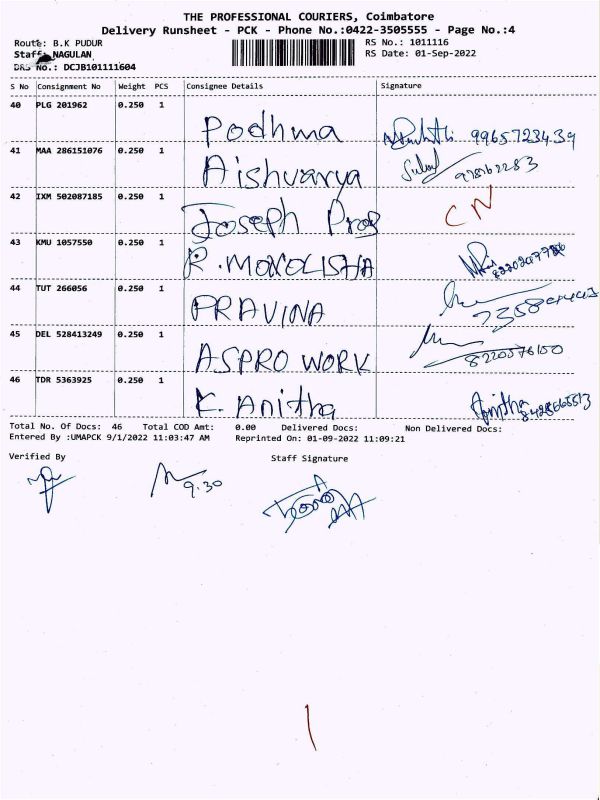 THE PROFESSIONAL COURIERS, Coimbatore
Delivery Runsheet - PCK - Phone No.:0422-3505555 - Page No.:4
Route: B.K PUDUR RS No.: 1011116
Staff: NAGULAN RS Date: 01-Sep-2022
DRS No.: DCJB101111604
S No Consignment No Weight PCS Consignee Details Signature
40 PLG 201962 0.250 1
Podhma 9965723439
41 MAA 286151076 0.250 1
Aishvarya
42 IXM 502087185 0.250 1
Joseph Pros CN
43 KMU 1057550 0.250 1
R. MONOLISHA
44 TUT 266056 0.250 1
PRAVINA
45 DEL 528413249 0.250 1
ASPRO WORK
46 TDR 5363925 0.250 1
K. Anitha Anitha
Total No. Of Docs: 46 Total COD Amt: 0.00 Delivered Docs: Non Delivered Docs:
Entered By :UMAPCK 9/1/2022 11:03:47 AM Reprinted On: 01-09-2022 11:09:21
Verified By Staff Signature
9.30